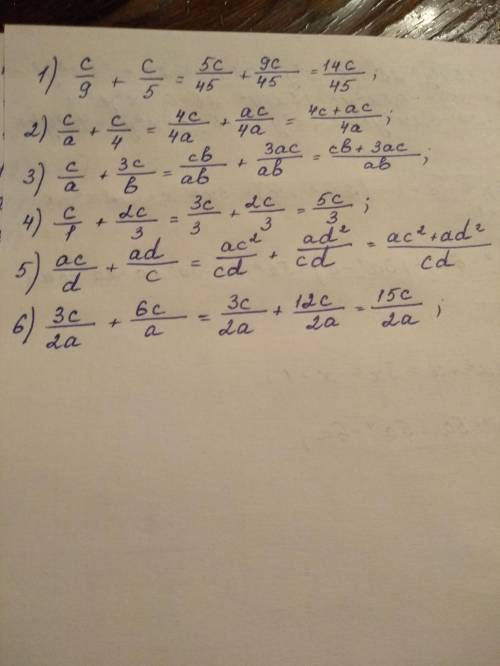 1) c/9 + c/5 = 5c/45 + 9c/45 = 14c/45 ;
2) c/a + c/4 = 4c/4a + ac/4a = 4c+ac/4a ;
3) c/a + 3c/b = cb/ab + 3ac/ab = cb+3ac/ab ;
4) c/1 + 2c/3 = 3c/3 + 2c/3 = 5c/3 ;
5) ac/d + ad/c = ac²/cd + ad²/cd = ac²+ad²/cd
6) 3c/2a + 6c/a = 3c/2a + 12c/2a = 15c/2a ;